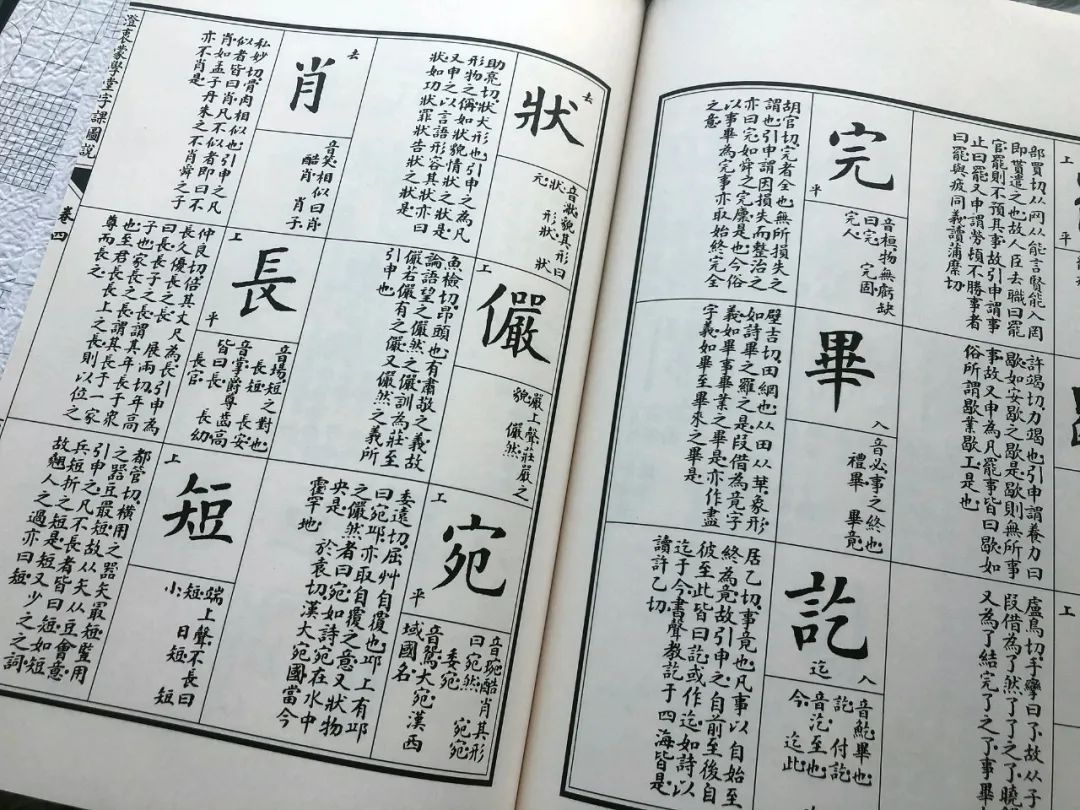 上
平
部買切从网从能言賢能入罔
即貰遣之也故人臣去職曰罷
官罷則不預其事故引申謂事
止曰罷又申謂勞頓不勝事者
曰罷與疲同義讀蒲縻切
許竭切力竭也引申謂養力曰
歇如安歇之歇是歇則無所事
事故又申為凡罷事皆曰歇如
俗所謂歇業歇工是也
上
盧鳥切手攣曰了故从子
叚借為了然了了之了曉
又為了結完了之了事畢
完
平
音桓物無虧缺
曰完 完固
完人
胡官切完者全也無所損失之
謂也引申謂因損失而整治之
亦曰完如舜之完廩是也今俗
以事畢為完事亦取始終完全
之意
畢
入
音必事之終也
禮畢 畢竟
壁吉切田網也从田从華象形
如詩畢之羅之是叚借為竟字
義如畢事畢業之畢是亦作盡
字義如畢至畢來之畢是
訖
迄 入
音䰴畢也
訖 付訖
音汔至也
今 迄此
居乙切事竟也凡事以自始至
終為竟故引申之自前至後自
彼至此皆曰訖或作迄如詩以
迄于今書聲教訖于四海皆是
讀許乙切
去
狀
音狀貌其形曰
狀 形狀 狀
元
助亮切狀犬形也引申之為凡
形物之稱如狀貌情狀之狀是
又申之以言語形容其狀亦曰
狀如功狀罪狀告狀之狀是
上
儼
嚴上聲莊嚴之
貌 儼然
魚檢切昂頭也有肅敬之義故
論語望之儼然之儼訓為莊至
儼若儼有之儼又儼然之義所
引申也
上
宛
平
音琬酷肖其形
曰宛然 宛宛
委宛
音鴛大宛漢西
域國名
委遠切屈艸自覆也邱上有邱
曰宛邱亦取自覆之意又狀物
之儼然者曰宛如詩宛在水中
央是 於袁切漢大宛國當今
霍罕地
去
肖
音笑相似曰肖
酷肖 肖子
私妙切骨肉相似也引申之凡
似者皆曰肖凡不似者即曰不
肖如孟子丹朱之不肖舜之子
亦不肖是
上
長
平
音場短之對也
長短 長安
音掌爵尊齒高
皆曰長 長幼
長官
仲良切倍其丈尺為長引申為
長久優長之長 展兩切年高
曰長長子之長謂其年長于眾
子也家長之長謂其長于一家
也至君長長上之長則以位之
尊而長之
上
短
端上聲不長曰
短 日短 短
小
都管切橫用之器矢最短豎用
之器豆最短故从矢从豆會意
引申之凡不長者皆曰短如短
兵短折之短是短又少之之詞
故翹人之過亦曰短
澄衷蒙學堂字課圖說
卷四